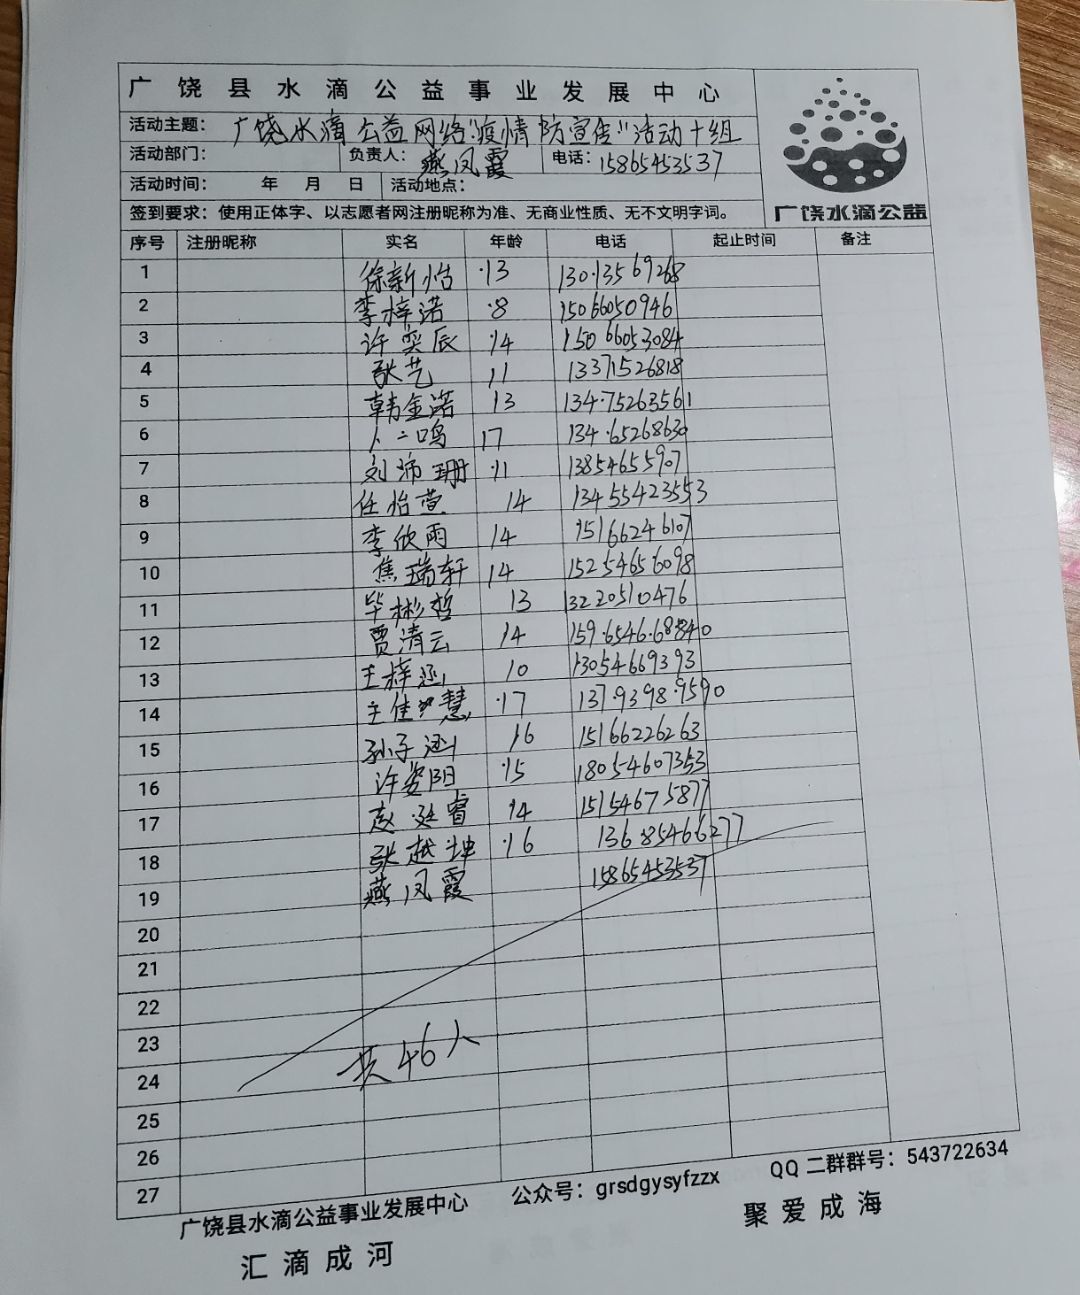 广饶县水滴公益事业发展中心
活动主题：广饶水滴公益网络"疫情防宣传"活动十组
活动部门： 负责人：燕凤霞 电话：15865453537
活动时间： 年 月 日 活动地点：
签到要求：使用正体字、以志愿者网注册昵称为准、无商业性质、无不文明字词。
广饶水滴公益
序号 注册昵称 实名 年龄 电话 起止时间 备注
1 徐新怡 13 13013569268
2 李梓诺 8 15066050946
3 许奕辰 14 15066053084
4 张艺 11 13371526818
5 韩金诺 13 13475263561
6 卜二鸣 17 13465268630
7 刘沛珊 11 13854655907
8 任怡萱 14 13455423553
9 李欣雨 14 15166246107
10 焦瑞轩 14 15254656098
11 毕彬哲 13 13220510476
12 贾清云 14 15965466840
13 王梓涵 10 13054669393
14 王佳慧 17 13793989590
15 孙子涵 16 15166226263
16 许姿阳 15 18054607353
17 赵廷睿 14 15154675877
18 张越坤 16 13685466277
19 燕凤霞 15865453537
20
21
22
23
24 共46人
25
26
27
广饶县水滴公益事业发展中心 公众号：grsdgysyfzzx QQ二群群号：543722634
汇滴成河 聚爱成海